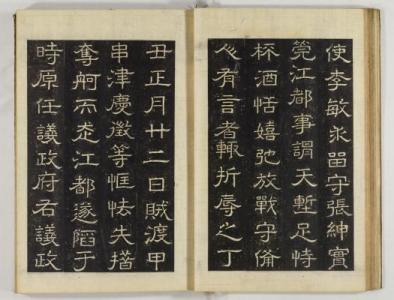 使李敏求留守張紳實
筦江都事謂天塹足恃
杯酒恬嬉弛放戰守俻
人有言者輒折辱之丁
丑正月廿二日賊渡甲
串津慶徵等恇怯失措
奪舸而走江都遂陷于
時原任議政府右議政